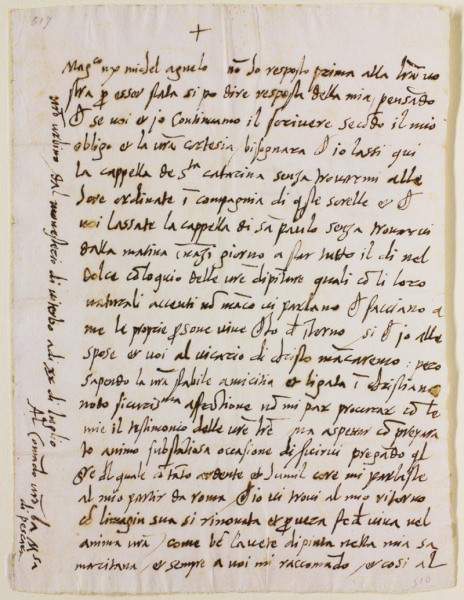 517
+
Mag.co m. michel agnelo nō ho resposto prima alla lrā vo
stra p esser stata si po dire resposta della mia, pensādo
ch se voi et io continuamo il scrivere secōdo il mio
obligo et la vrā cortesia bisognara ch io lassi qui
la cappella de S.ta catarina senza trovarmi alle
hore ordinate ī compagnia di qste sorelle et ch
voi lassate la cappella di sā paulo senza trovarvi
dalla matina ināzi giorno a star tutto il di nel
dolce cōloquio delle vrē dipīture quali cō li loro
naturali accenti nō māco vi parlano ch facciano a
me le proprie psone vive ch ho d ītorno si ch io alle
spose et voi al vicario di christo mācaremo: pero
sapendo la nrā stabile amicitia et ligata ī christiano
nodo affectione nō mi par procurar cō le
mie il testimonio delle vrē lrē ma aspettar cō prepara
to animo substātiosa occasione di servirvi pregādo ql
S.re del quale cō tāto ardente et humil core mi parlaste
al mio partir da roma ch io vi trovi al mio ritorno
cō limagin sua si rinovata et p vera fede viva nel
anima vrā come bē lavete dipinta nella mia sa
maritana et sempre a voi mi raccomādo et cosi al
vrō urbino dal monasterio di viterbo a di xx di luglio
Al comādo vrō la M.sa
di pescara
510